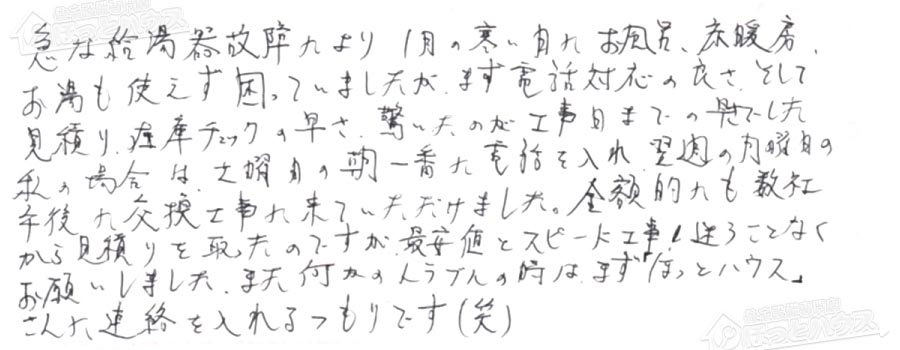 急な給湯器故障により 1月の寒い日に お風呂、床暖房、
お湯も使えず困っていましたが、まず電話対応の良さ、そして
見積り、在庫チェックの早さ、驚いたのが工事日までの早さでした
私の場合は、土曜日の朝一番に電話を入れ 翌週の月曜日の
午後に交換工事に来ていただけました。金額的にも数社
から見積りを取ったのですが、最安値とスピード工事!迷うことなく
お願いしました、また何かのトラブルの時は、まず「ほっとハウス」
さんに、連絡を入れるつもりです(笑)
ほっとハウス
ほっとハウス